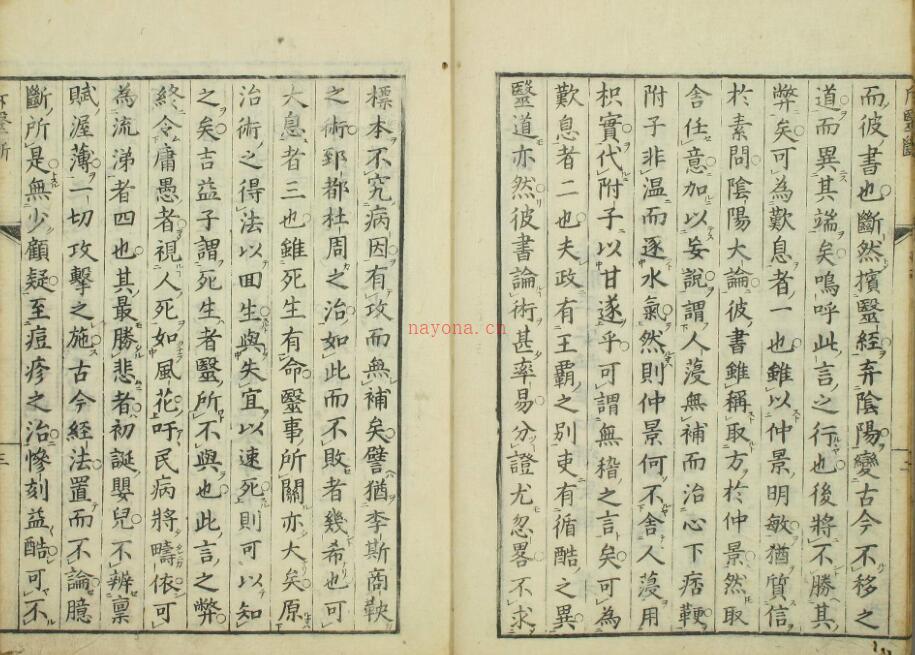 而彼書也斷然擯醫經弃陰陽變古今不移之
道而異其端矣嗚呼此言之行也後將不勝其
弊矣可為歎息者一也雖以仲景明敏猶質信
於素問陰陽大論彼書雖稱取方於仲景然取
舍任意加以妄說謂人薓無補而治心下痞鞕
附子非温而逐水氣然則仲景何不舍人薓用
枳實代附子以甘遂乎可謂無稽之言矣可為
歎息者二也夫政有王霸之別吏有循酷之異
醫道亦然彼書論術甚率易分證尤忽畧不求
標本不究病因有攻而無補矣譬猶李斯商鞅
之術郅都杜周之治如此而不敗者幾希也可
大息者三也雖死生有命醫事所關亦大矣原
治術之得法以回生與失宜以速死則可以知
之矣吉益子謂死生者醫所不與也此言之弊
終令庸愚者視人死如風花吁民病將疇依可
為流涕者四也其最勝悲者初誕嬰兒不辨稟
賦渥薄一切攻擊之施古今經法置而不論臆
斷所是無少顧疑至痘疹之治慘刻益酷可不
nayona.cn